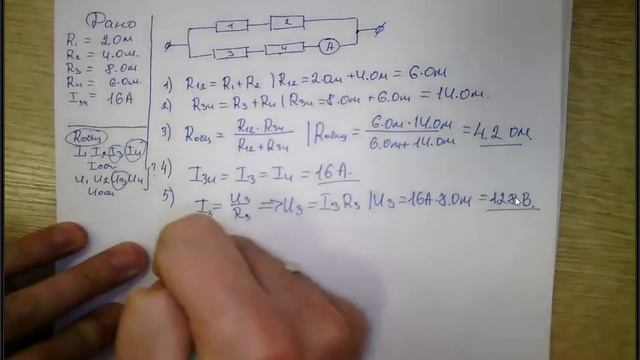 Дано
R₁ = 2 Ом
R₂ = 4 Ом
R₃ = 8 Ом
R₄ = 6 Ом
I₃₄ = 16 А
Rобщ
I₁ I₂ I₃ I₄
Iобщ
U₁ U₂ U₃ U₄
Uобщ
?
1 2
3 4 A
1) R₁₂ = R₁ + R₂ | R₁₂ = 2 Ом + 4 Ом = 6 Ом
2) R₃₄ = R₃ + R₄ | R₃₄ = 8 Ом + 6 Ом = 14 Ом.
3) Rобщ = R₁₂ · R₃₄ / R₁₂ + R₃₄ | Rобщ = 6 Ом · 14 Ом / 6 Ом + 14 Ом = 4.2 Ом.
4) I₃₄ = I₃ = I₄ = 16 А.
5) I₃ = U₃ / R₃ => U₃ = I₃ R₃ | U₃ = 16 А · 8 Ом = 128 В.